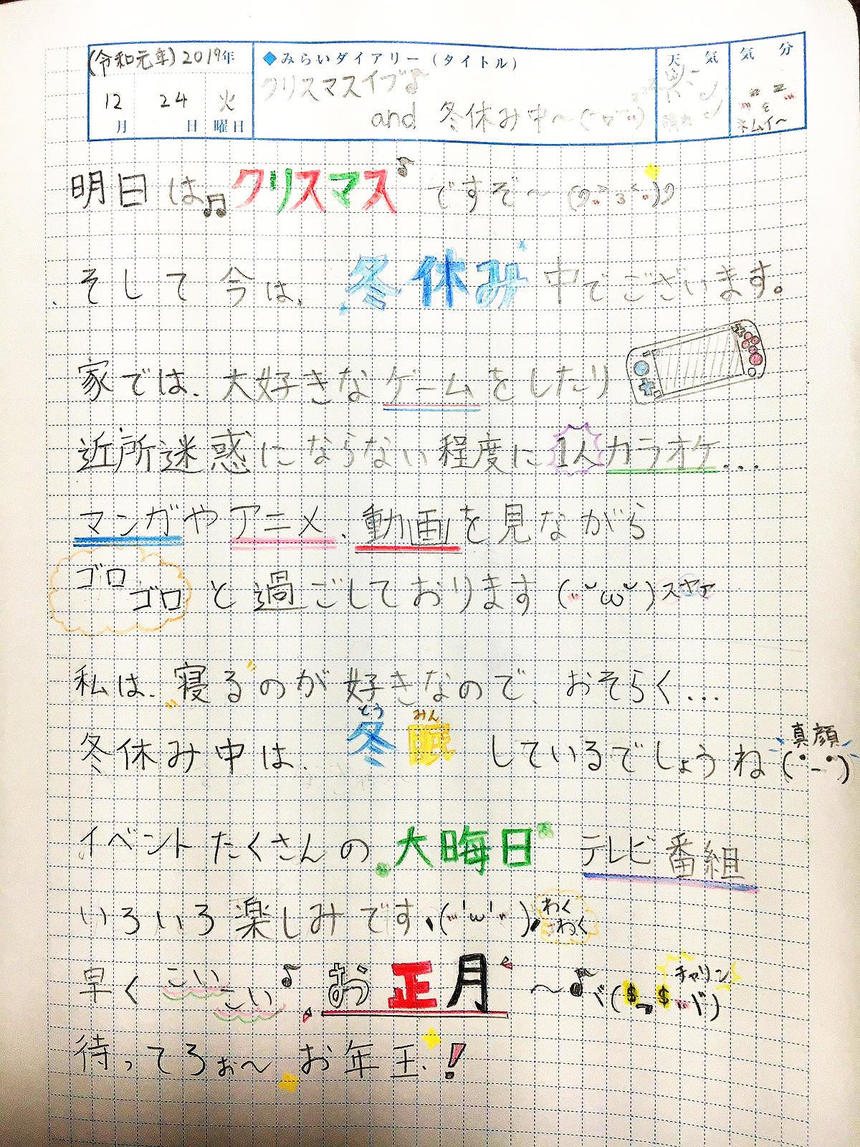 (令和元年)2019年
◆みらいダイアリー(タイトル)
天気
気分
12月24日火曜日
クリスマスイブ♪
and 冬休み中～
ネムイ～
明日は♫クリスマス♪ですぞ～
そして今は、冬休み中でございます。
家では、大好きなゲームをしたり
近所迷惑にならない程度に1人カラオケ...
マンガやアニメ、動画を見ながら
ゴロゴロと過ごしております(˘ω˘)スヤァ
私は、"寝る"のが好きなので、おそらく...
とうみん
冬休み中は、冬眠しているでしょうね(・_・)
真顔
イベントたくさんの大晦日テレビ番組
いろいろ楽しみです、('ω')わくわく
早くこいこい♪お正月～♪($_$)チャリン
待ってろぉ～お年玉!